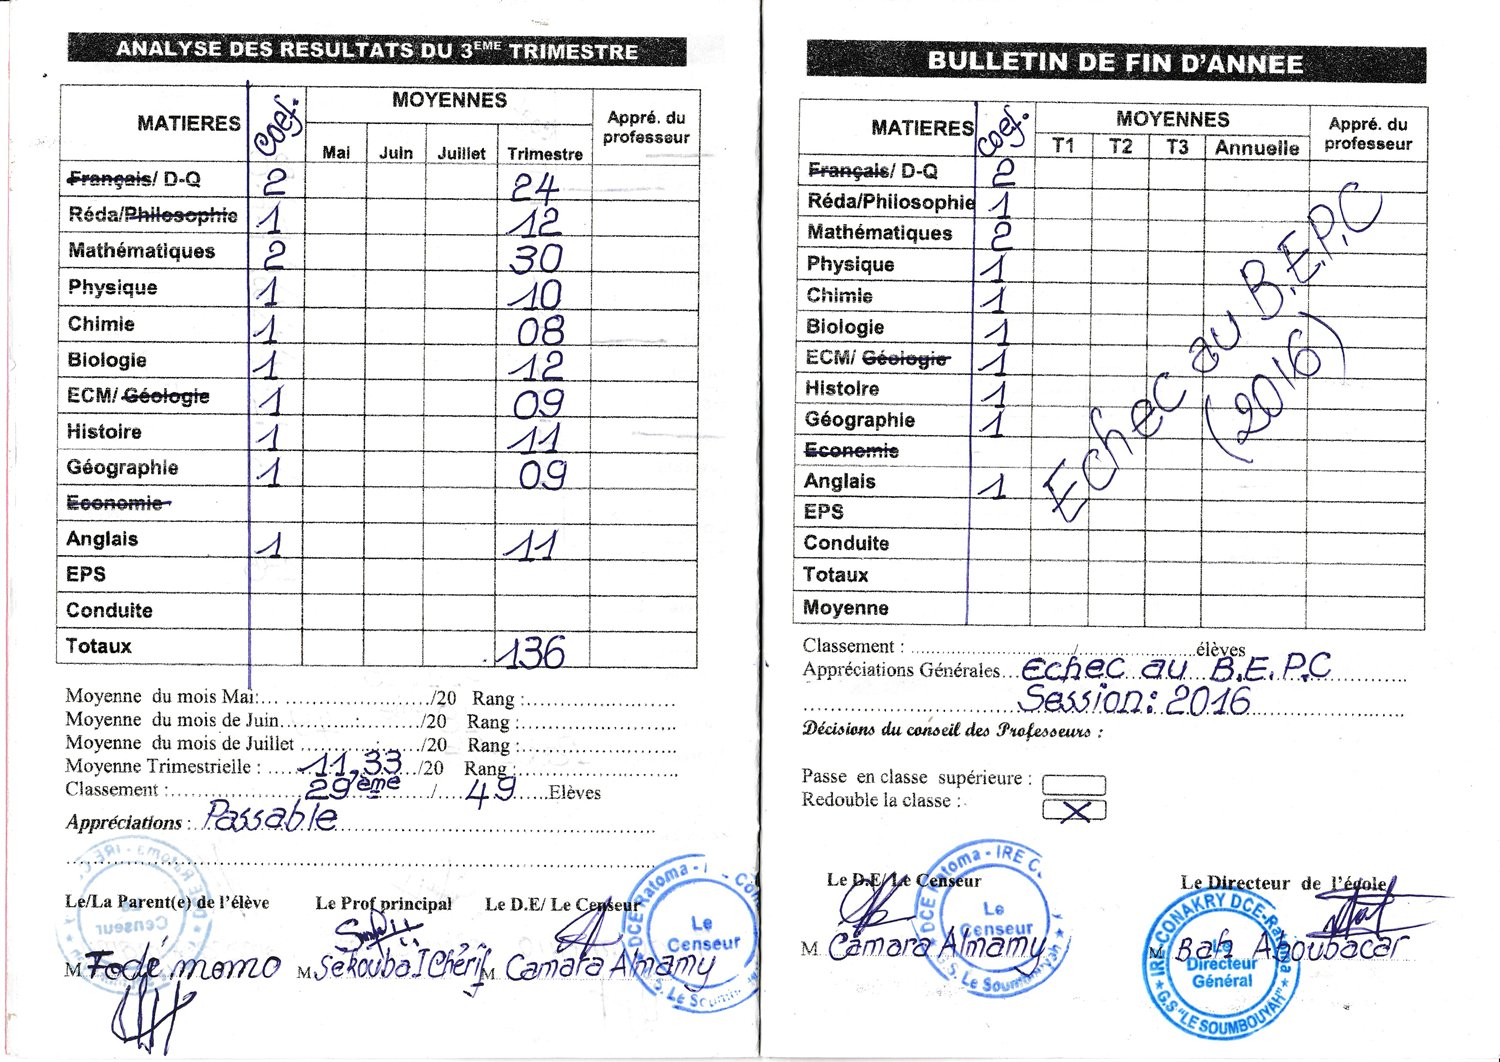 ANALYSE DES RESULTATS DU 3EME TRIMESTRE
MATIERES Coef. MOYENNES Appré. du professeur
Mai Juin Juillet Trimestre
Français/ D-Q 2 24
Réda/Philosophie 1 12
Mathématiques 2 30
Physique 1 10
Chimie 1 08
Biologie 1 12
ECM/ Géologie 1 09
Histoire 1 11
Géographie 1 09
Economie
Anglais 1 11
EPS
Conduite
Totaux 136
Moyenne du mois Mai:............/20 Rang :............
Moyenne du mois de Juin............/20 Rang :............
Moyenne du mois de Juillet............/20 Rang :............
Moyenne Trimestrielle : 11,33 /20 Rang :............
Classement : 29ème / 49 Elèves
Appréciations : Passable
Le/La Parent(e) de l'élève Le Prof principal Le D.E/ Le Censeur
M Fodé momo M Sekouba I Chérif M Camara Almamy
DCE-Ratoma
Le Censeur
BULLETIN DE FIN D'ANNEE
MATIERES Coef. MOYENNES Appré. du professeur
T1 T2 T3 Annuelle
Français/ D-Q 2
Réda/Philosophie 1
Mathématiques 2
Physique 1
Chimie 1
Biologie 1
ECM/ Géologie 1
Histoire 1
Géographie 1
Economie
Anglais 1
EPS
Conduite
Totaux
Moyenne
Echec au B.E.P.C
(2016)
Classement : ............/............élèves
Appréciations Générales... Echec au B.E.P.C
Session: 2016
Décisions du conseil des Professeurs :
Passe en classe supérieure :
Redouble la classe : X
Le D.E/ Le Censeur Le Directeur de l'école
M Camara Almamy M Bah Aboubacar
DCE Ratoma - IRE C
Le Censeur
S. Le Soumbouyah"
IRE CONAKRY DCE-Ratoma
Le Directeur Général
G.S "LE SOUMBOUYAH"